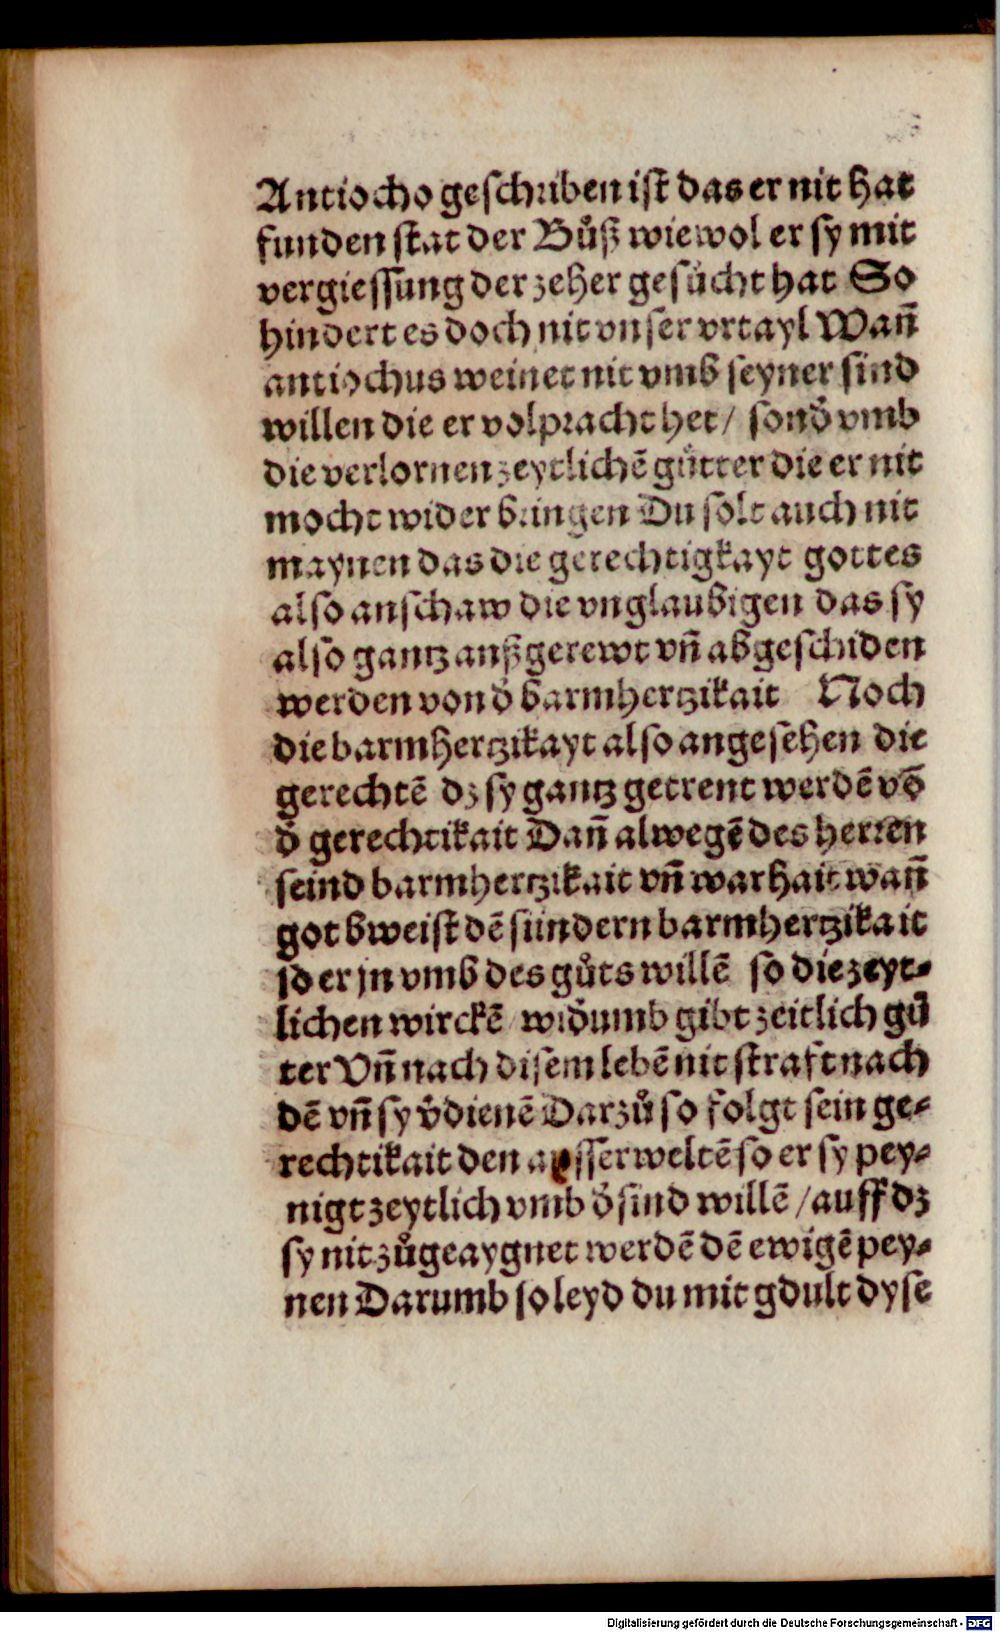 Antiocho geschriben ist das er nit hat
funden stat der Bůß wiewol er sy mit
vergiessung der zeher gesůcht hat So
hindert es doch nit vnser vrtayl Wañ
antiochus weinet nit vmb seyner sind
willen die er volpracht het / sond̓ vmb
die verlornen zeytlichē gütter die er nit
mocht wider bringen Du solt auch nit
maynen das die gerechtigkayt gottes
also anschaw die vnglaubigen das sy
also gantz anßgerewt vñ abgeschiden
werden von d̓ barmhertzikait Noch
die barmhertzikayt also angesehen die
gerechtē dz sy gantz getrent werdē vō
d̓ gerechtikait Dañ alwegē des herren
seind barmhertzikait vñ warhait wañ
got bweist dē sündern barmhertzikait
so er jn vmb des gůts willē so die zeyt⸗
lichen wirckē wid̓umb gibt zeitlich gü
ter Vñ nach disem lebē nit straft nach
dē vñ sy v̓dienē Darzů so folgt sein ge⸗
rechtikait den ausserweltē so er sy pey⸗
nigt zeytlich vmb d̓ sind willē / auff dz
sy nit zůgeaygnet werdē dē ewigē pey⸗
nen Darumb so leyd du mit gdult dyse
Digitalisierung gefördert durch die Deutsche Forschungsgemeinschaft - DFG